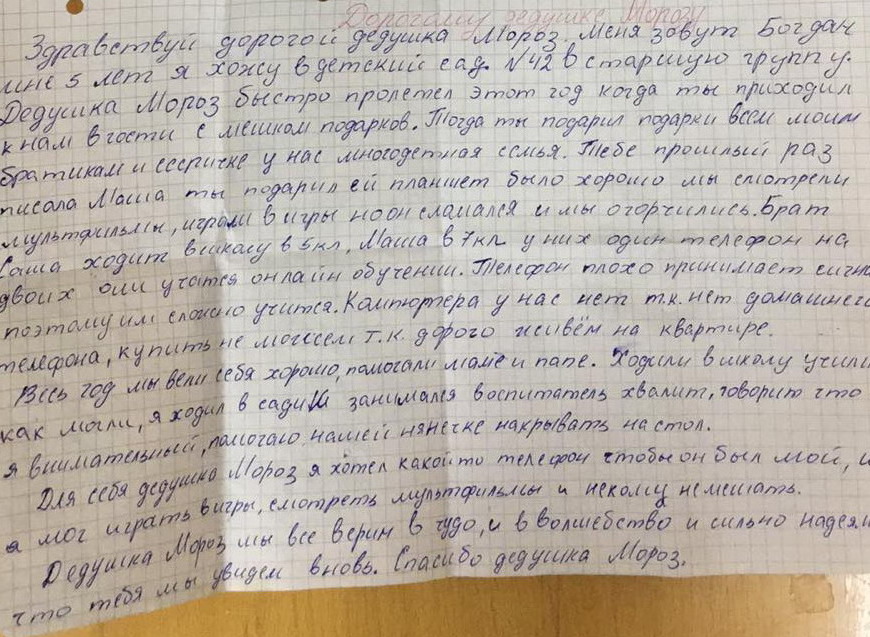 Дорогому дедушке Морозу
Здравствуй дорогой дедушка Мороз. Меня зовут Богдан
мне 5 лет я хожу в детский сад. N42 в старшую группу.
Дедушка Мороз быстро пролетел этот год когда ты приходил
к нам в гости с мешком подарков. Тогда ты подарил подарки всем моим
братикам и сестричке у нас многодетная семья. Тебе прошлый раз
писала Маша ты подарил ей планшет было хорошо мы смотрели
мультфильмы, играли в игры но он сламался и мы огорчились. Брат
Саша ходит в школу в 5кл, Маша в 7кл у них один телефон на
двоих они учатся онлайн обучении. Телефон плохо принимает сигна
поэтому им сложно учится. Компютера у нас нет т.к. нет домашнего
телефона, купить не можем т.к. дорого живём на квартире.
Весь год мы вели себя хорошо, помогали маме и папе. Ходили в школу учили
как могли, я ходил в садик занимался воспитатель хвалит, говорит что
я внимательный, помогаю нашей нянечке накрывать на стол.
Для себя дедушка Мороз я хотел какой то телефон чтобы он был мой, и
я мог играть в игры, смотреть мультфильмы и некому немешать.
Дедушка Мороз мы все верим в чудо, и в волшебство и сильно надеем
что тебя мы увидем вновь. Спасибо дедушка Мороз.